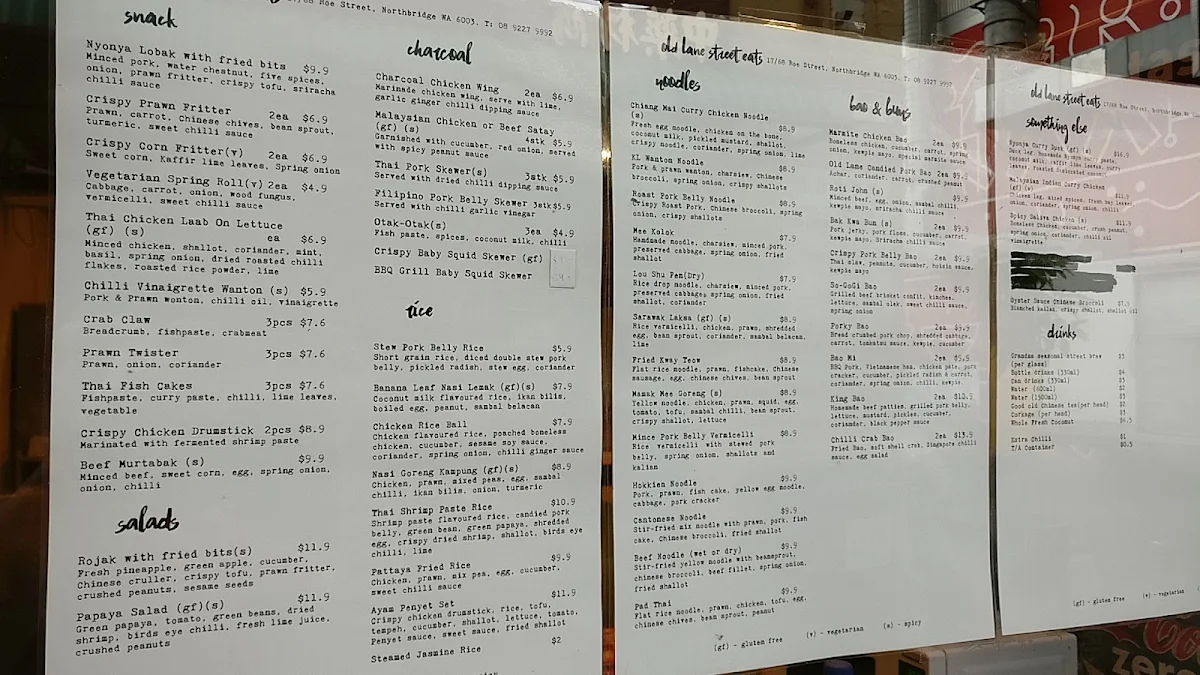 17/68 Roe Street, Northbridge WA 6003. T: 08 9227 9992
snack
Nyonya Lobak with fried bits $9.9
Minced pork, water chestnut, five spices,
onion, prawn fritter, crispy tofu, sriracha
chilli sauce
Crispy Prawn Fritter 2ea $6.9
Prawn, carrot, Chinese chives, bean sprout,
turmeric, sweet chilli sauce
Crispy Corn Fritter(v) 2ea $6.9
Sweet corn, Kaffir lime leaves, Spring onion
Vegetarian Spring Roll(v) 2ea $4.9
Cabbage, carrot, onion, wood fungus,
vermicelli, sweet chilli sauce
Thai Chicken Laab On Lettuce
(gf) (s) ea $6.9
Minced chicken, shallot, coriander, mint,
basil, spring onion, dried roasted chilli
flakes, roasted rice powder, lime
Chilli Vinaigrette Wanton (s) $5.9
Pork & Prawn wonton, chilli oil, vinaigrette
Crab Claw 3pcs $7.6
Breadcrumb, fishpaste, crabmeat
Prawn Twister 3pcs $7.6
Prawn, onion, coriander
Thai Fish Cakes 3pcs $7.6
Fishpaste, curry paste, chilli, lime leaves,
vegetable
Crispy Chicken Drumstick 2pcs $8.9
Marinated with fermented shrimp paste
Beef Murtabak (s) $9.9
Minced beef, sweet corn, egg, spring onion,
onion, chilli
salads
Rojak with fried bits(s) $11.9
Fresh pineapple, green apple, cucumber,
Chinese cruller, crispy tofu, prawn fritter,
crushed peanuts, sesame seeds
Papaya Salad (gf)(s) $11.9
Green papaya, tomato, green beans, dried
shrimp, birds eye chilli, fresh lime juice,
crushed peanuts
charcoal
Charcoal Chicken Wing 2ea $6.9
Marinade chicken wing, serve with lime,
garlic ginger chilli dipping sauce
Malaysian Chicken or Beef Satay
(gf) (s) 4stk $5.9
Garnished with cucumber, red onion, served
with spicy peanut sauce
Thai Pork Skewer(s) 3stk $5.9
Served with dried chilli dipping sauce
Filipino Pork Belly Skewer 3stk $5.9
Served with chilli garlic vinegar
Otak-Otak(s) 3ea $4.9
Fish paste, spices, coconut milk, chilli
Crispy Baby Squid Skewer (gf)
BBQ Grill Baby Squid Skewer
rice
Stew Pork Belly Rice $5.9
Short grain rice, diced double stew pork
belly, pickled radish, stew egg, coriander
Banana Leaf Nasi Lemak (gf)(s) $7.9
Coconut milk flavoured rice, ikan bilis,
boiled egg, peanut, sambal belacan
Chicken Rice Ball $7.9
Chicken flavoured rice, poached boneless
chicken, cucumber, sesame soy sauce,
coriander, spring onion, chilli ginger sauce
Nasi Goreng Kampung (gf)(s) $8.9
Chicken, prawn, mixed peas, egg, sambal
chilli, ikan bilis, onion, turmeric
Thai Shrimp Paste Rice $10.9
Shrimp paste flavoured rice, candied pork
belly, green bean, green papaya, shredded
egg, crispy dried shrimp, shallot, birds eye
chilli, lime
Pattaya Fried Rice $9.9
Chicken, prawn, mix pea, egg, cucumber,
sweet chilli sauce
Ayam Penyet Set $11.9
Crispy chicken drumstick, rice, tofu,
tempeh, cucumber, shallot, lettuce, tomato,
Penyet sauce, sweet sauce, fried shallot
Steamed Jasmine Rice $2
old lane street eats 17/68 Roe Street, Northbridge WA 6003. T: 08 9227 9992
noodles
Chiang Mai Curry Chicken Noodle
(s) $8.9
Fresh egg noodle, chicken on the bone,
coconut milk, pickled mustard, shallot,
crispy noodle, coriander, spring onion, lime
KL Wanton Noodle $8.9
Pork & prawn wanton, charsiew, Chinese
broccoli, spring onion, crispy shallots
Roast Pork Belly Noodle $8.9
Crispy Roast Pork, Chinese broccoli, spring
onion, crispy shallots
Mee Kolok $7.9
Handmade noodle, charsiew, minced pork,
preserved cabbage, spring onion, fried
shallot
Lou Shu Fen(Dry) $7.9
Rice drop noodle, charsiew, minced pork,
preserved cabbage, spring onion, fried
shallot, coriander
Sarawak Laksa (gf) (s) $8.9
Rice vermicelli, chicken, prawn, shredded
egg, bean sprout, coriander, sambal belacan,
lime
Fried Kway Teow $8.9
Flat rice noodle, prawn, fishcake, Chinese
sausage, egg, chinese chives, bean sprout
Mamak Mee Goreng (s) $8.9
Yellow noodle, chicken, prawn, squid, egg,
tomato, tofu, sambal chilli, bean sprout,
crispy shallot, lettuce
Mince Pork Belly Vermicelli $8.9
Rice vermicelli with stewed pork
belly, spring onion, shallots and
kalian
Hokkien Noodle $9.9
Pork, prawn, fish cake, yellow egg noodle,
cabbage, pork cracker
Cantonese Noodle $9.9
Stir-fried mix noodle with prawn, pork, fish
cake, Chinese broccoli, fried shallot
Beef Noodle (wet or dry) $9.9
Stir-fried yellow noodle with beansprout,
chinese broccoli, beef fillet, spring onion,
fried shallot
Pad Thai $9.9
Flat rice noodle, prawn, chicken, tofu, egg,
chinese chives, bean sprout, peanut
(gf) - gluten free (v) - vegetarian (s) - spicy
bao & buns
Marmite Chicken Bao 2ea $9.9
Boneless chicken, cucumber, carrot, spring
onion, kewpie mayo, special marmite sauce
Old Lane Candied Pork Bao 2ea $9.9
Achar, coriander, carrot, crushed peanut
Roti John (s) $9.9
Minced beef, egg, onion, sambal chilli,
kewpie mayo, sriracha chilli sauce
Bak Kwa Bun (s) 2ea $9.9
Pork jerky, pork floss, cucumber, carrot,
kewpie mayo, Sriracha chilli sauce
Crispy Pork Belly Bao 2ea $9.9
Thai slaw, peanuts, cucumber, hoisin sauce,
kewpie mayo
So-GoGi Bao 2ea $9.9
Grilled beef brisket confit, kimchee,
lettuce, sambal olek, sweet chilli sauce,
spring onion
Porky Bao 2ea $9.9
Bread crumbed pork chop, shredded cabbage,
carrot, tonkatsu sauce, kewpie, cucumber
Bao Mi 2ea $9.9
BBQ Pork, Vietnamese ham, chicken pate, pork
cracker, cucumber, pickled radish & carrot,
coriander, spring onion, chilli, kewpie.
King Bao 2ea $10.9
Homemade beef patties, grilled pork belly,
lettuce, mustard, pickles, cucumber,
coriander, black pepper sauce
Chilli Crab Bao 2ea $13.9
Fried Bao, soft shell crab, Singapore chilli
sauce, egg salad
old lane street eats 17/68 Roe Street, Northbridge WA
something else
Nyonya Curry Duck (gf) (s) $16.9
Duck leg, homemade Nyonya curry paste,
coconut milk, kaffir lime leaves, curry
leaves, roasted desiccated coconut
Malaysian Indian Curry Chicken
(gf) (s) $11.9
Chicken leg, mixed spices, fresh bay leaves,
onion, coriander, spring onion, chilli
Spicy Saliva Chicken (s) $11.9
Boneless Chicken, cucumber, crush peanut,
spring onion, coriander, chilli oil
vinaigrette
Oyster Sauce Chinese Broccoli $7.9
Blanched kailan, crispy shallot, shallot oil
drinks
Grandma seasonal street brew $3
(per glass)
Bottle drinks (330ml) $4
Can drinks (330ml) $3
Water (600ml) $2
Water (1500ml) $3
Good old Chinese tea(per head) $2
Corkage (per head) $3
Whole Fresh Coconut $6.5
Extra Chilli $1
T/A Container $0.5
(gf) - gluten free (v) - vegetarian
zero